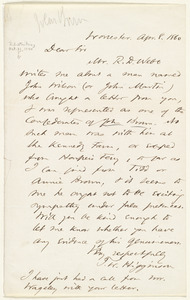 John Brown
Worcester Apr. 8. 1860
Dear Sir
Mr. R. D. Webb
writes me about a man named
John Wilson (or John Martin)
who brought a letter from you,
& was represented as one of the
Confederates of John Brown. No
such man was with him at
the Kennedy Farm, or
Harpers Ferry, so far as
I can find from Tidd or
Annie Brown, & it does seem to
me he ought not to be exciting
sympathy under false pretences.
Will you be kind enough to
let me know whether you have
any evidence of his genuineness.
Very respectfully
T. W. Higginson
I have just had a call from
with your letter.